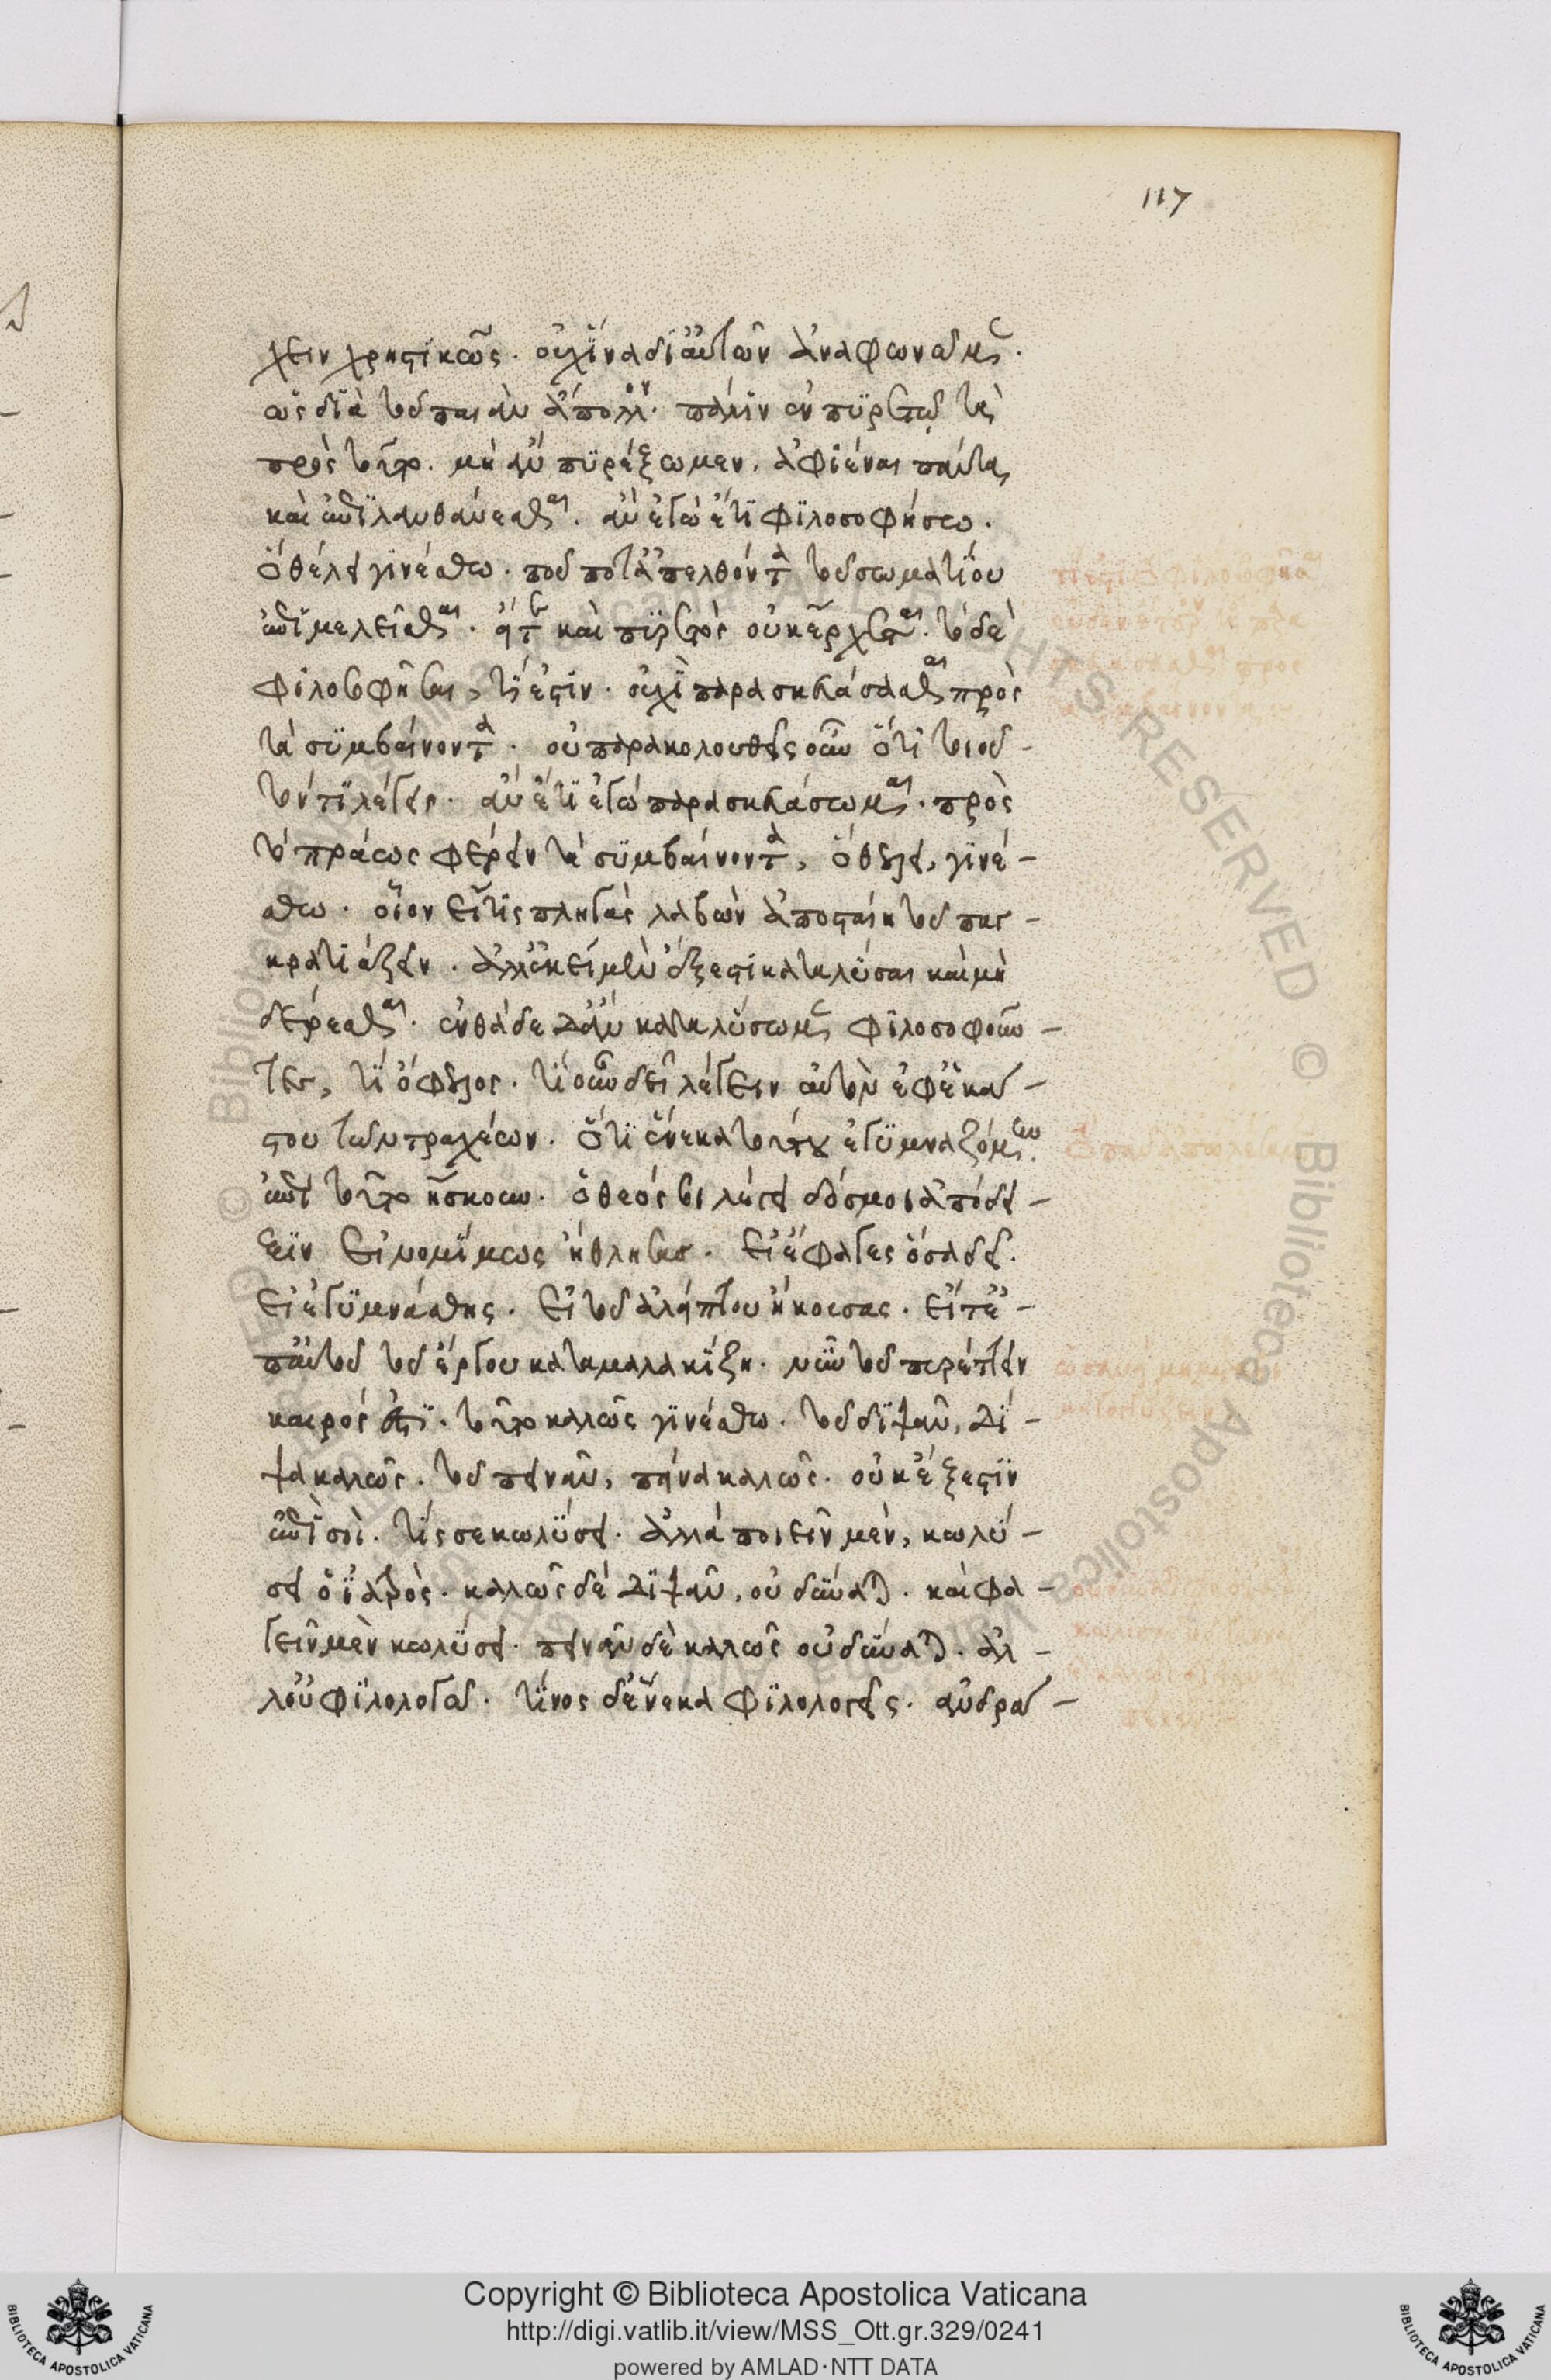 117
χειν χρηστικῶς. οὐχ ἵνα δι' αὐτῶν ἀναφωνῶμεν.
ὡς διὰ τοῦ παιὰν ἄπολλον. πάλιν ἐν πυρετῷ τὰ
πρὸς τοῦτο. μὴ ἂν πυρέξωμεν, ἀφιέναι πάντα
καὶ ἐπιλανθάνεσθαι. ἂν ἐγὼ ἔτι φιλοσοφήσω.
ὃ θέλει γινέσθω. ποῦ ποτ' ἀπελθόντα τοῦ σωματίου
ἐπιμελεῖσθαι. καὶ πυρετὸς οὐκ ἔρχεται. τὸ δὲ
φιλοσοφῆσαι, τί ἐστιν. οὐχὶ παρασκευάσασθαι πρὸς
τὰ συμβαίνοντα. οὐ παρακολουθεῖς οὖν ὅτι τοιοῦ-
τόν τι λέγεις. ἂν ἔτι ἐγὼ παρασκευάσωμαι. πρὸς
τὸ πράως φέρειν τὰ συμβαίνοντα, ὃ θέλει, γινέ-
σθω. οἷον εἴ τις πληγὰς λαβὼν ἀποσταίη τοῦ παγ-
κρατιάζειν. ἀλλ' ἐκεῖ μὲν ἔξεστι καταλῦσαι καὶ μὴ
δέρεσθαι. ἐνθάδε δ' ἂν καταλύσωμεν φιλοσοφοῦν-
τες, τί ὄφελος. τί οὖν δεῖ λέγειν αὐτὸν ἐφ' ἑκά-
στου τῶν τραχέων. ὅτι ἕνεκα τούτου ἐγυμναζόμην.
ἐπὶ τοῦτο ἤσκουν. ὁ θεός σοι λέγει δός μοι ἀπόδει-
ξιν εἰ νομίμως ἤθλησας. εἰ ἔφαγες ὅσα δεῖ.
εἰ ἐγυμνάσθης. εἰ τοῦ ἀλείπτου ἤκουσας. εἶτ' ἐ-
π' αὐτοῦ τοῦ ἔργου καταμαλακίζῃ. νῦν τοῦ πυρέττειν
καιρός ἐστι. τοῦτο καλῶς γινέσθω. τοῦ διψᾶν, δί-
ψα καλῶς. τοῦ πεινᾶν, πείνα καλῶς. οὐκ ἔξεστιν
ἐπὶ σοί. τίς σε κωλύσει. ἀλλὰ ποιεῖν μὲν, κωλύ-
σει ὁ ἰατρός. καλῶς δὲ διψᾶν, οὐ δύναται. καὶ φα-
γεῖν μὲν κωλύσει. πεινᾶν δὲ καλῶς οὐ δύναται. ἀλ-
λ' οὐ φιλολογῶ. τίνος δ' ἕνεκα φιλολογεῖς. ἀνδρά-
Copyright © Biblioteca Apostolica Vaticana
http://digi.vatlib.it/view/MSS_Ott.gr.329/0241
powered by AMLAD·NTT DATA